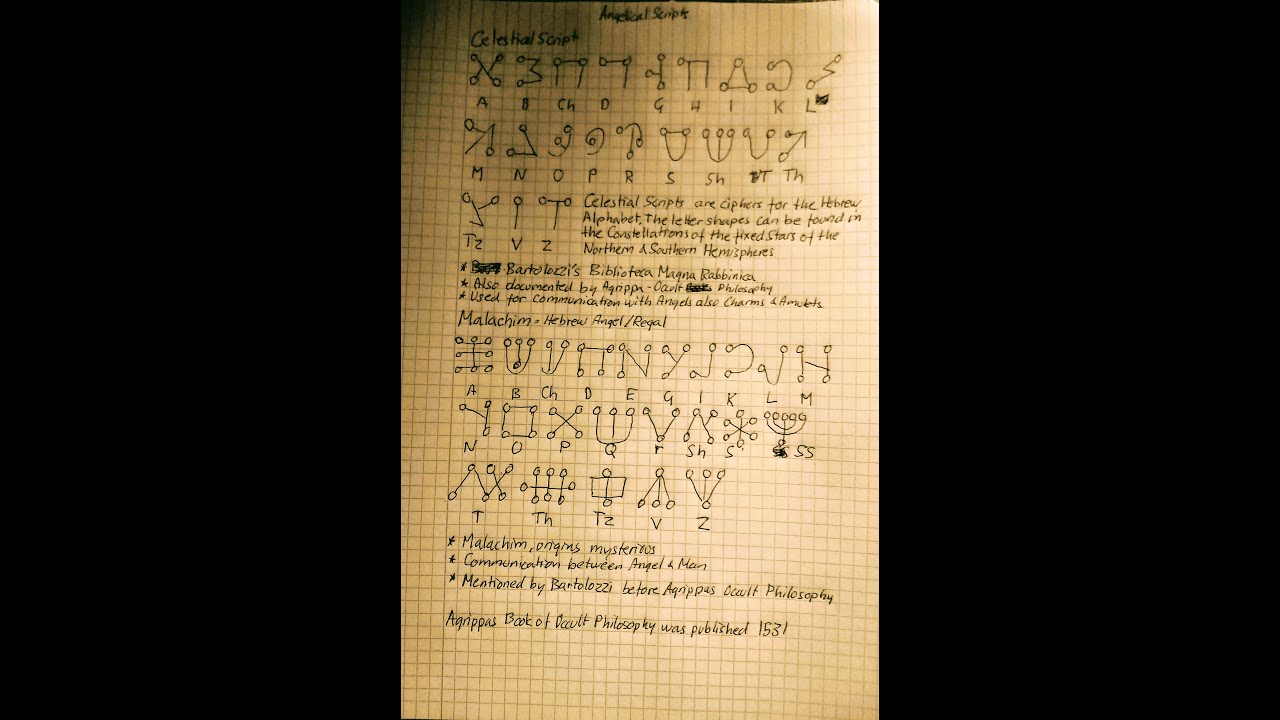 Angelical Scripts
Celestial Script
A B Ch D G H I K L
M N O P R S Sh T Th
Tz V Z
Celestial Scripts are ciphers for the Hebrew
Alphabet. The letter shapes can be found in
the Constellations of the fixed Stars of the
Northern & Southern Hemispheres
* Bartolozzi's Biblioteca Magna Rabbinica
* Also documented by Agrippa - Occult Philosophy
* Used for communication with Angels also Charms & Amulets
Malachim = Hebrew Angel/Regal
A B Ch D E G I K L M
N O P Q r Sh S SS
T Th Tz V Z
* Malachim, origins mysterious
* Communication between Angel & Man
* Mentioned by Bartolozzi before Agrippas Occult Philosophy
Agrippas Book of Occult Philosophy was published 1531